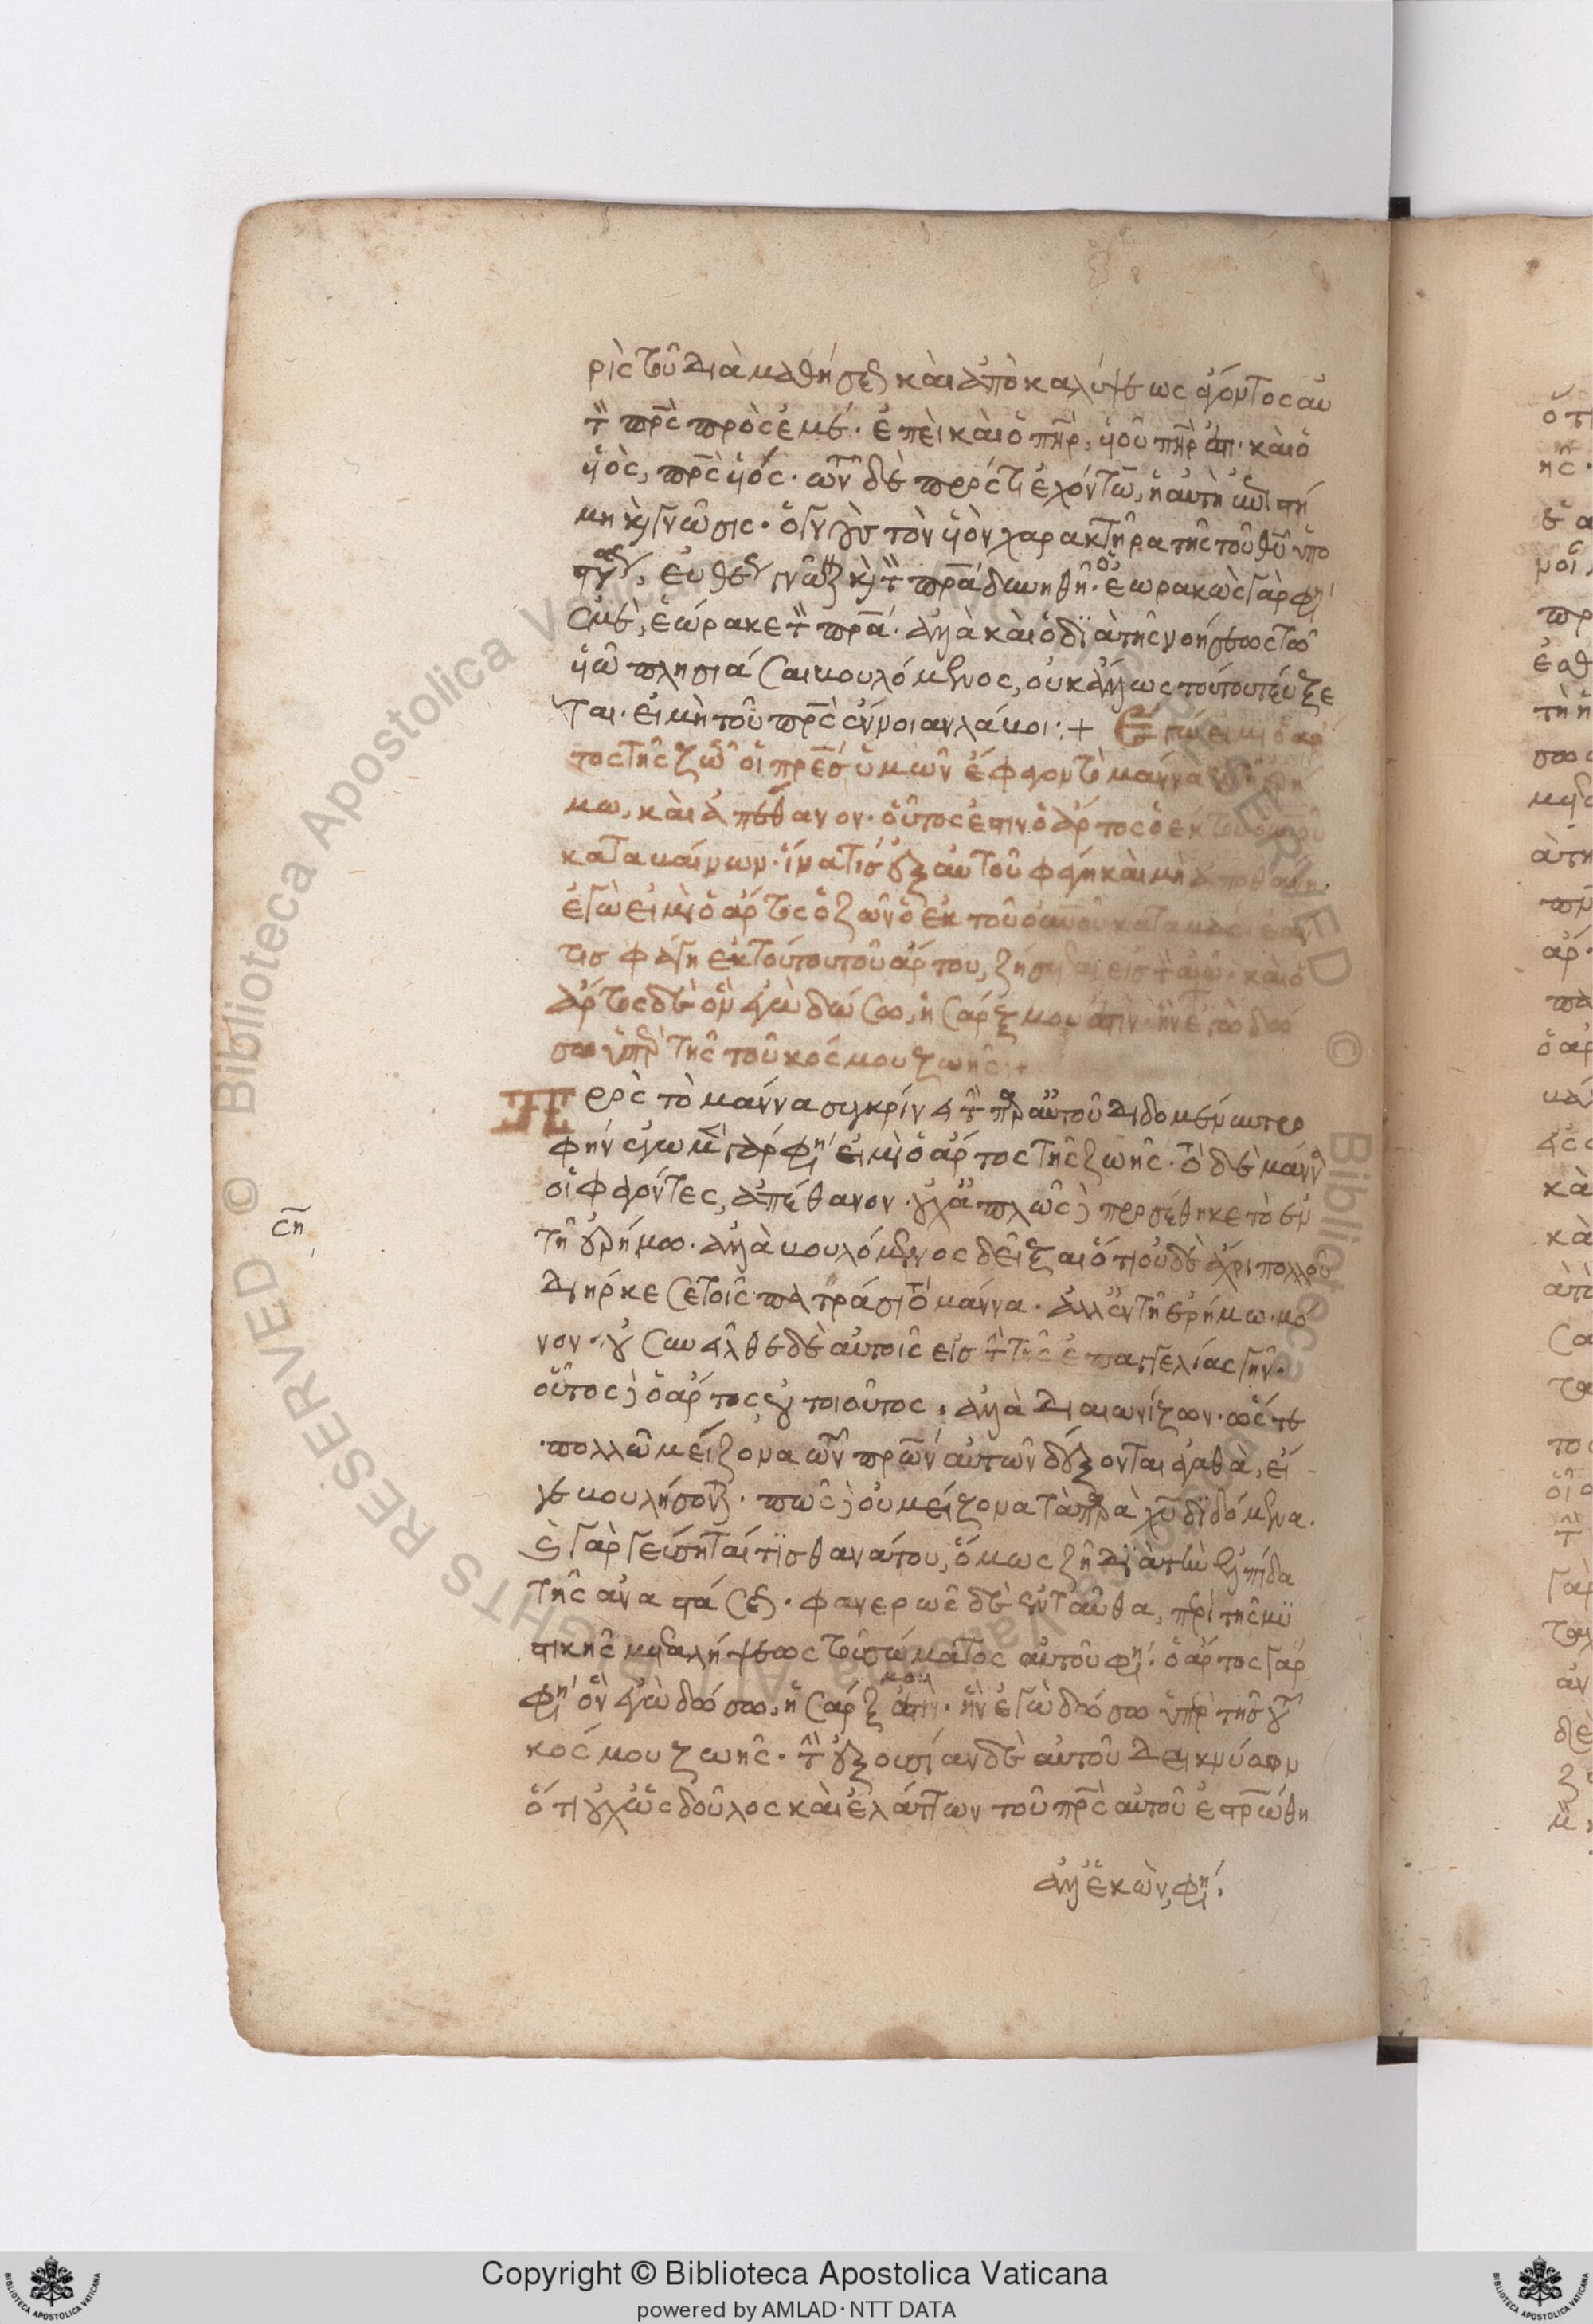 ρὶς τοῦ διὰ μαθήσεως καὶ ἀποκαλύψεως ἄγοντος αὐ
τὸν πρ̅ς πρὸς ἐμέ. ἐπεὶ καὶ ὁ πη̅ρ, υἱοῦ πη̅ρ ἐστι. καὶ ὁ
υἱὸς, πρ̅ς υἱός. τῶν δὲ πρός τι ἐχόντων, ἡ αὐτὴ ἐπιστή
μη καὶ γνῶσις. τὸν υἱὸν χαρακτῆρα τῆς τοῦ θυ̅ ὑπο
εὐθέως καὶ τὸν πρ̅α ἐδιδάχθη. ὁ ἑωρακὼς γὰρ φησὶ
ἐμὲ, ἑώρακε τὸν πρ̅α. ἀλλὰ καὶ ὁ διὰ τῆς νοήσεως τῷ
υἱῷ πλησιάσαι βουλόμενος, οὐκ ἄλλως τούτου τεύξε
ται. εἰ μὴ τοῦ πρ̅ς :+ Ἐγώ εἰμι ὁ ἄρ
τος τῆς ζωῆς οἱ πρ̅ες ὑμῶν ἔφαγον τὸ μάννα ἐν τῇ ἐρή
μω, καὶ ἀπέθανον. οὗτός ἐστιν ὁ ἄρτος ὁ ἐκ τοῦ οὐνοῦ
καταβαίνων. ἵνα τις ἐξ αὐτοῦ φάγη καὶ μὴ ἀποθάνη.
ἐγώ εἰμι ὁ ἄρτος ὁ ζῶν ὁ ἐκ τοῦ οὐνοῦ καταβάς. ἐάν
τις φάγη ἐκ τούτου τοῦ ἄρτου, ζήσεται εἰς τὸν αἰῶνα. καὶ ὁ
ἄρτος δὲ ὃν ἐγὼ δώσω, ἡ σάρξ μου ἐστιν. ἣν ἐγὼ δώ
σω ὑπὲρ τῆς τοῦ κόσμου ζωῆς :+
Πρὸς τὸ μάννα συγκρίνει τὴν παρ' αὐτοῦ διδομένην τρο
φήν ἐγὼ μὲν γάρ φησὶ εἰμὶ ὁ ἄρτος τῆς ζωῆς. τὸ δὲ μάννα
οἱ φαγόντες, ἀπέθανον. οὐχ ἁπλῶς δὲ προσέθηκε τὸ ἐν
τῇ ἐρήμω. ἀλλὰ βουλόμενος δεῖξαι ὅτι οὐδὲ ἄχρι πολλοῦ
διήρκεσε τοῖς πατράσι τὸ μάννα. ἀλλ' ἐν τῇ ἐρήμω μό
νον. οὐ συνῆλθε δὲ αὐτοῖς εἰς τὴν τῆς ἐπαγγελίας γῆν.
οὗτος δὲ ὁ ἄρτος οὐ τοιοῦτος. ἀλλὰ διαιωνίζων. ὥστε
πολλῶ μείζονα τῶν πρ̅ων αὐτῶν δέξονται ἀγαθὰ, εἴ
γε βουλήσονται. πῶς δὲ οὐ μείζονα τὰ παρὰ χυ̅ διδόμενα.
εἰ γὰρ γεύσηταί τις θανάτου, ὅμως ζῆ διὰ τὴν ἐλπίδα
τῆς ἀναστάσεως. φανερῶς δὲ ἐνταῦθα, περὶ τῆς μυ
στικῆς μεταλήψεως τοῦ σώματος αὐτοῦ φησί. ὁ ἄρτος γὰρ
φησὶ ὃν ἐγὼ δώσω, ἡ σάρξ μου ἐστιν. ἣν ἐγὼ δώσω ὑπὲρ τῆς τοῦ
κόσμου ζωῆς. τὴν ἐξουσίαν δὲ αὐτοῦ δεικνύων
ὅτι οὐχ ὡς δοῦλος καὶ ἐλάττων τοῦ πρ̅ς αὐτοῦ ἐστρ̅ώθη
ἀλλ' ἑκὼν, φησί.
σ̅η
Copyright © Biblioteca Apostolica Vaticana
powered by AMLAD·NTT DATA